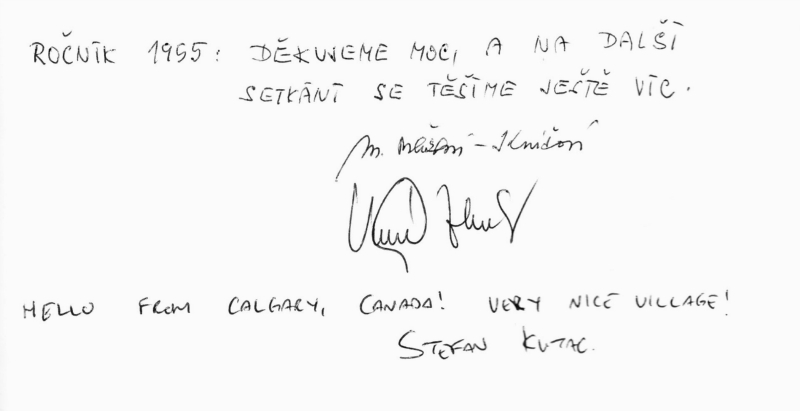 ROČNÍK 1955: DĚKUJEME MOC, A NA DALŠÍ
SETKÁNÍ SE TĚŠÍME JEŠTĚ VÍC.
M.
HELLO FROM CALGARY, CANADA! VERY NICE VILLAGE!
STEFAN KUTAC.